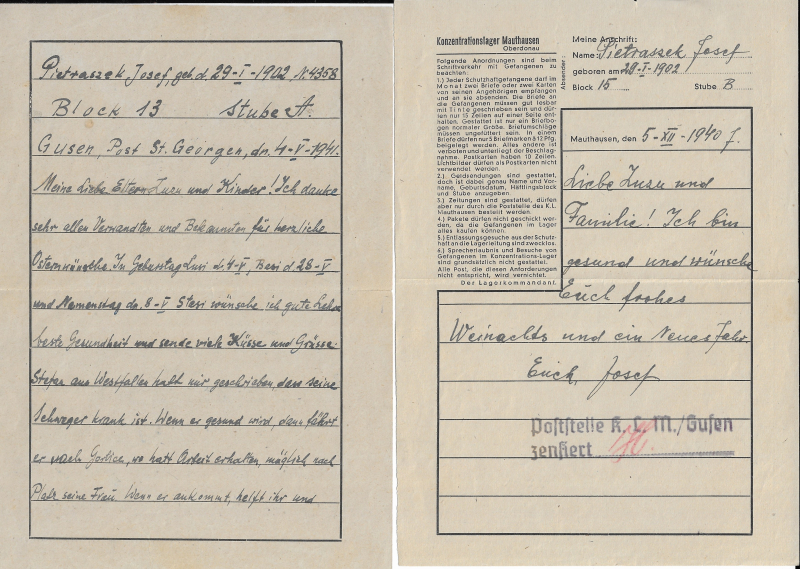 Pietraszek Josef, geb. d. 29-I-1902 N 4358
Block 13 Stube A.
Gusen, Post St. Georgen, dn. 4-V-1941.
Meine Liebe Eltern Zuzu und Kinder! Ich danke
sehr allen Verwandten und Bekannten für herzliche
Osternwünsche. In Geburtstag Lusi d. 4-V, Besi d. 28-V
und Namenstag dn. 8-V Stesi wünsche ich gute
beste Gesundheit und sende viele Küsse und Grüsse.
Stefan aus Westfallen hatt mir geschrieben, dass seine
Schwager krank ist. Wenn er gesund wird, dann fährt
er nach Gorlice, wo hatt Arbeit erhalten, möglich nach
Platz seine Frau. Wenn er ankommt, helft ihr und
Konzentrationslager Mauthausen
Oberdonau
Folgende Anordnungen sind beim
Schriftverkehr mit Gefangenen zu
beachten:
1.) Jeder Schutzhaftgefangene darf im
Monat zwei Briefe oder zwei Karten
von seinen Angehörigen empfangen
und an sie absenden. Die Briefe an
die Gefangenen müssen gut lesbar
mit Tinte geschrieben sein und dür-
fen nur 15 Zeilen auf einer Seite ent-
halten. Gestattet ist nur ein Briefbo-
gen normaler Größe. Briefumschläge
müssen ungefüttert sein. In einem
Briefe dürfen nur 5 Briefmarken à 12 Pfg.
beigelegt werden. Alles andere ist
verboten und unterliegt der Beschlag-
nahme. Postkarten haben 10 Zeilen.
Lichtbilder dürfen als Postkarten nicht
verwendet werden.
2.) Geldsendungen sind gestattet,
doch ist dabei genau Name und Vor-
name, Geburtsdatum, Häftlingsblock
und Stube anzugeben.
3.) Zeitungen sind gestattet, dürfen
aber nur durch die Poststelle des K.L.
Mauthausen bestellt werden.
4.) Pakete dürfen nicht geschickt wer-
den, da die Gefangenen im Lager
alles kaufen können.
5.) Entlassungsgesuche aus der Schutz-
haft an die Lagerleitung sind zwecklos.
6.) Sprecherlaubnis und Besuche von
Gefangenen im Konzentrations-Lager
sind grundsätzlich nicht gestattet.
Alle Post, die diesen Anforderungen
nicht entspricht, wird vernichtet.
Der Lagerkommandant.
Absender:
Meine Anschrift:
Name: Pietraszek Josef
geboren am 29-I-1902
Block 15 Stube B
Mauthausen, den 5-XII-1940 J.
Liebe Zuzu und
Familie! Ich bin
gesund und wünsche
Euch frohes
Weinachts und ein Neues Jahr.
Euch, Josef
Poststelle K. L. M./Gusen
zensiert